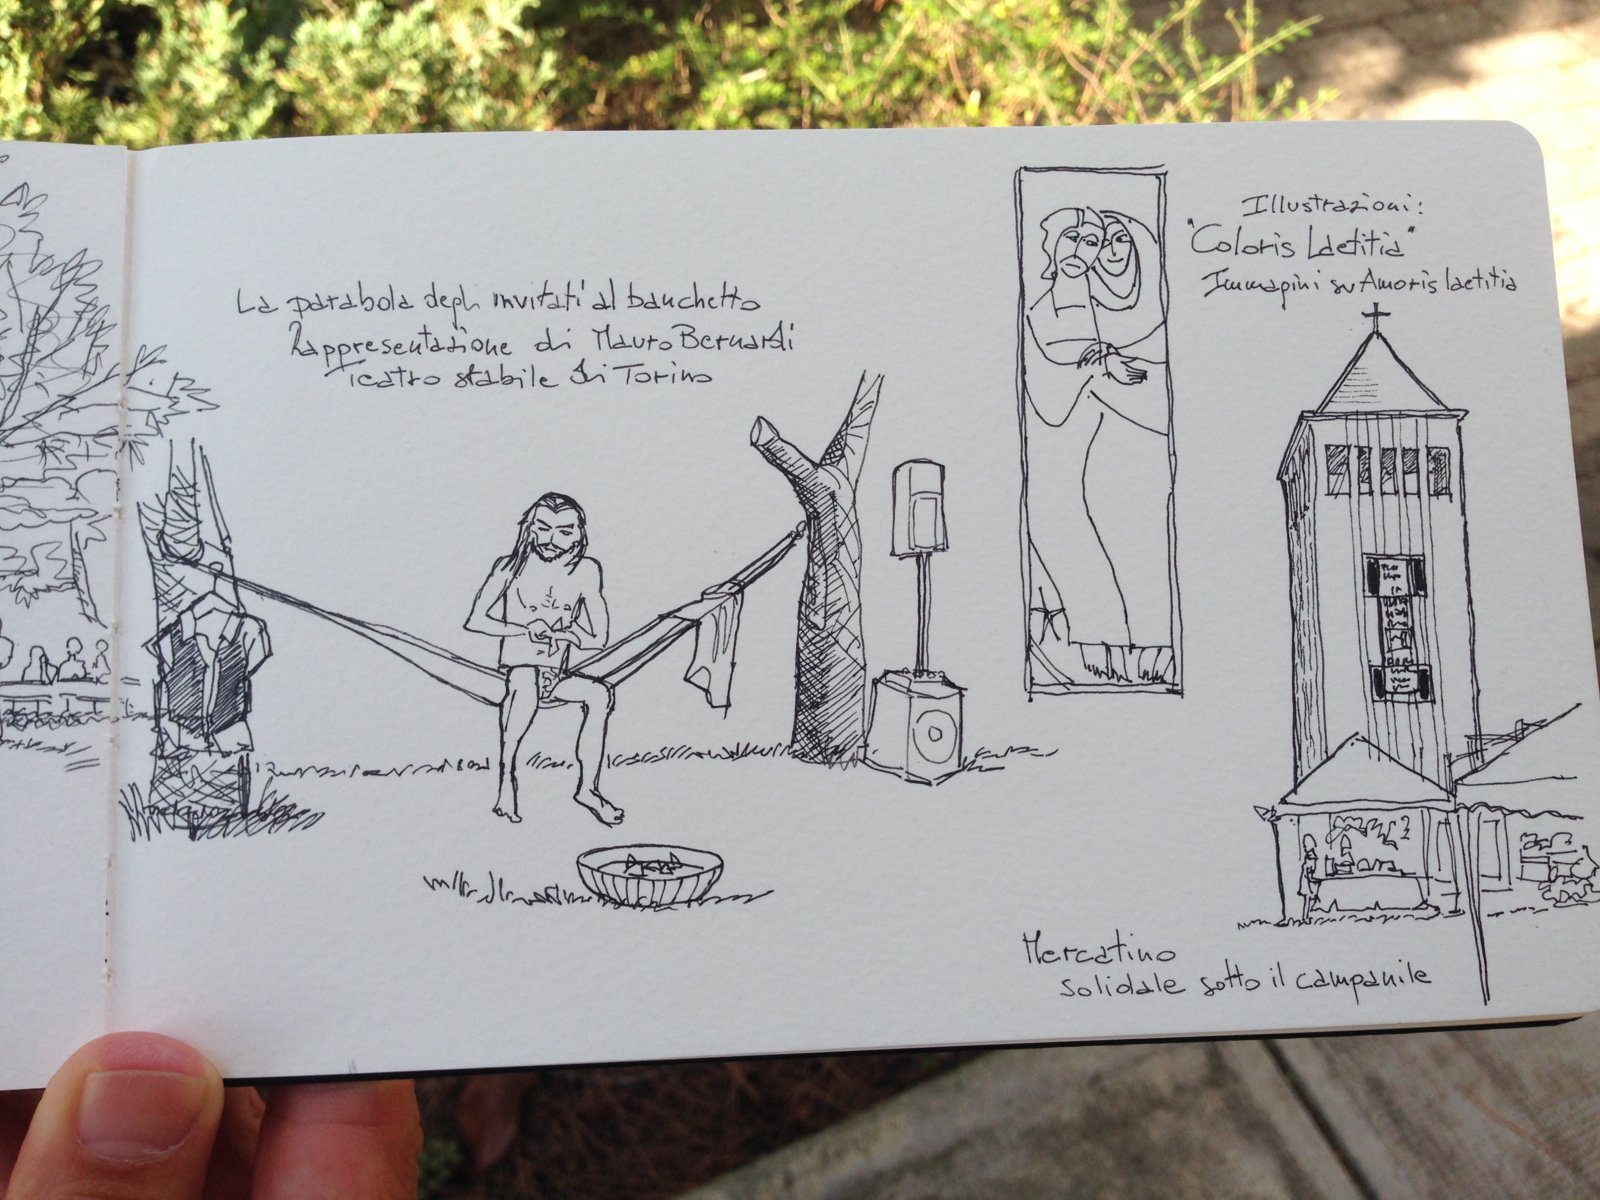 La parabola degli invitati al banchetto
Rappresentazione di Mauro Bernardi
Teatro stabile di Torino
Illustrazioni:
"Coloris Laetitia"
Immagini su Amoris laetitia
Mercatino
solidale sotto il campanile